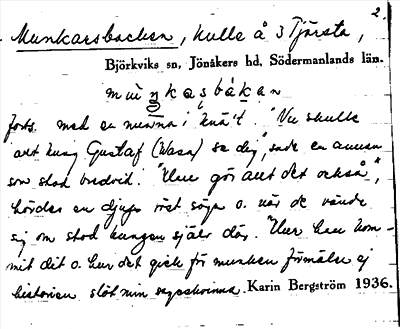 2.
Munkarsbacken, kulle å 3 Tjärsta,
Björkviks sn, Jönåkers hd, Södermanlands län.
forts. med en nunna i knä't. "Nu skulle
allt kung Gustaf (Wasa) se dig", sade en annan
som stod bredvid. "Hur gör allt det också",
hördes en djup röst säga o. när de vände
sig om stod kungen själv där. "Hur han kom-
mit dit o. hur det gick för munken förmäler ej
historien slöt min sageskvinna. Karin Bergström 1936.